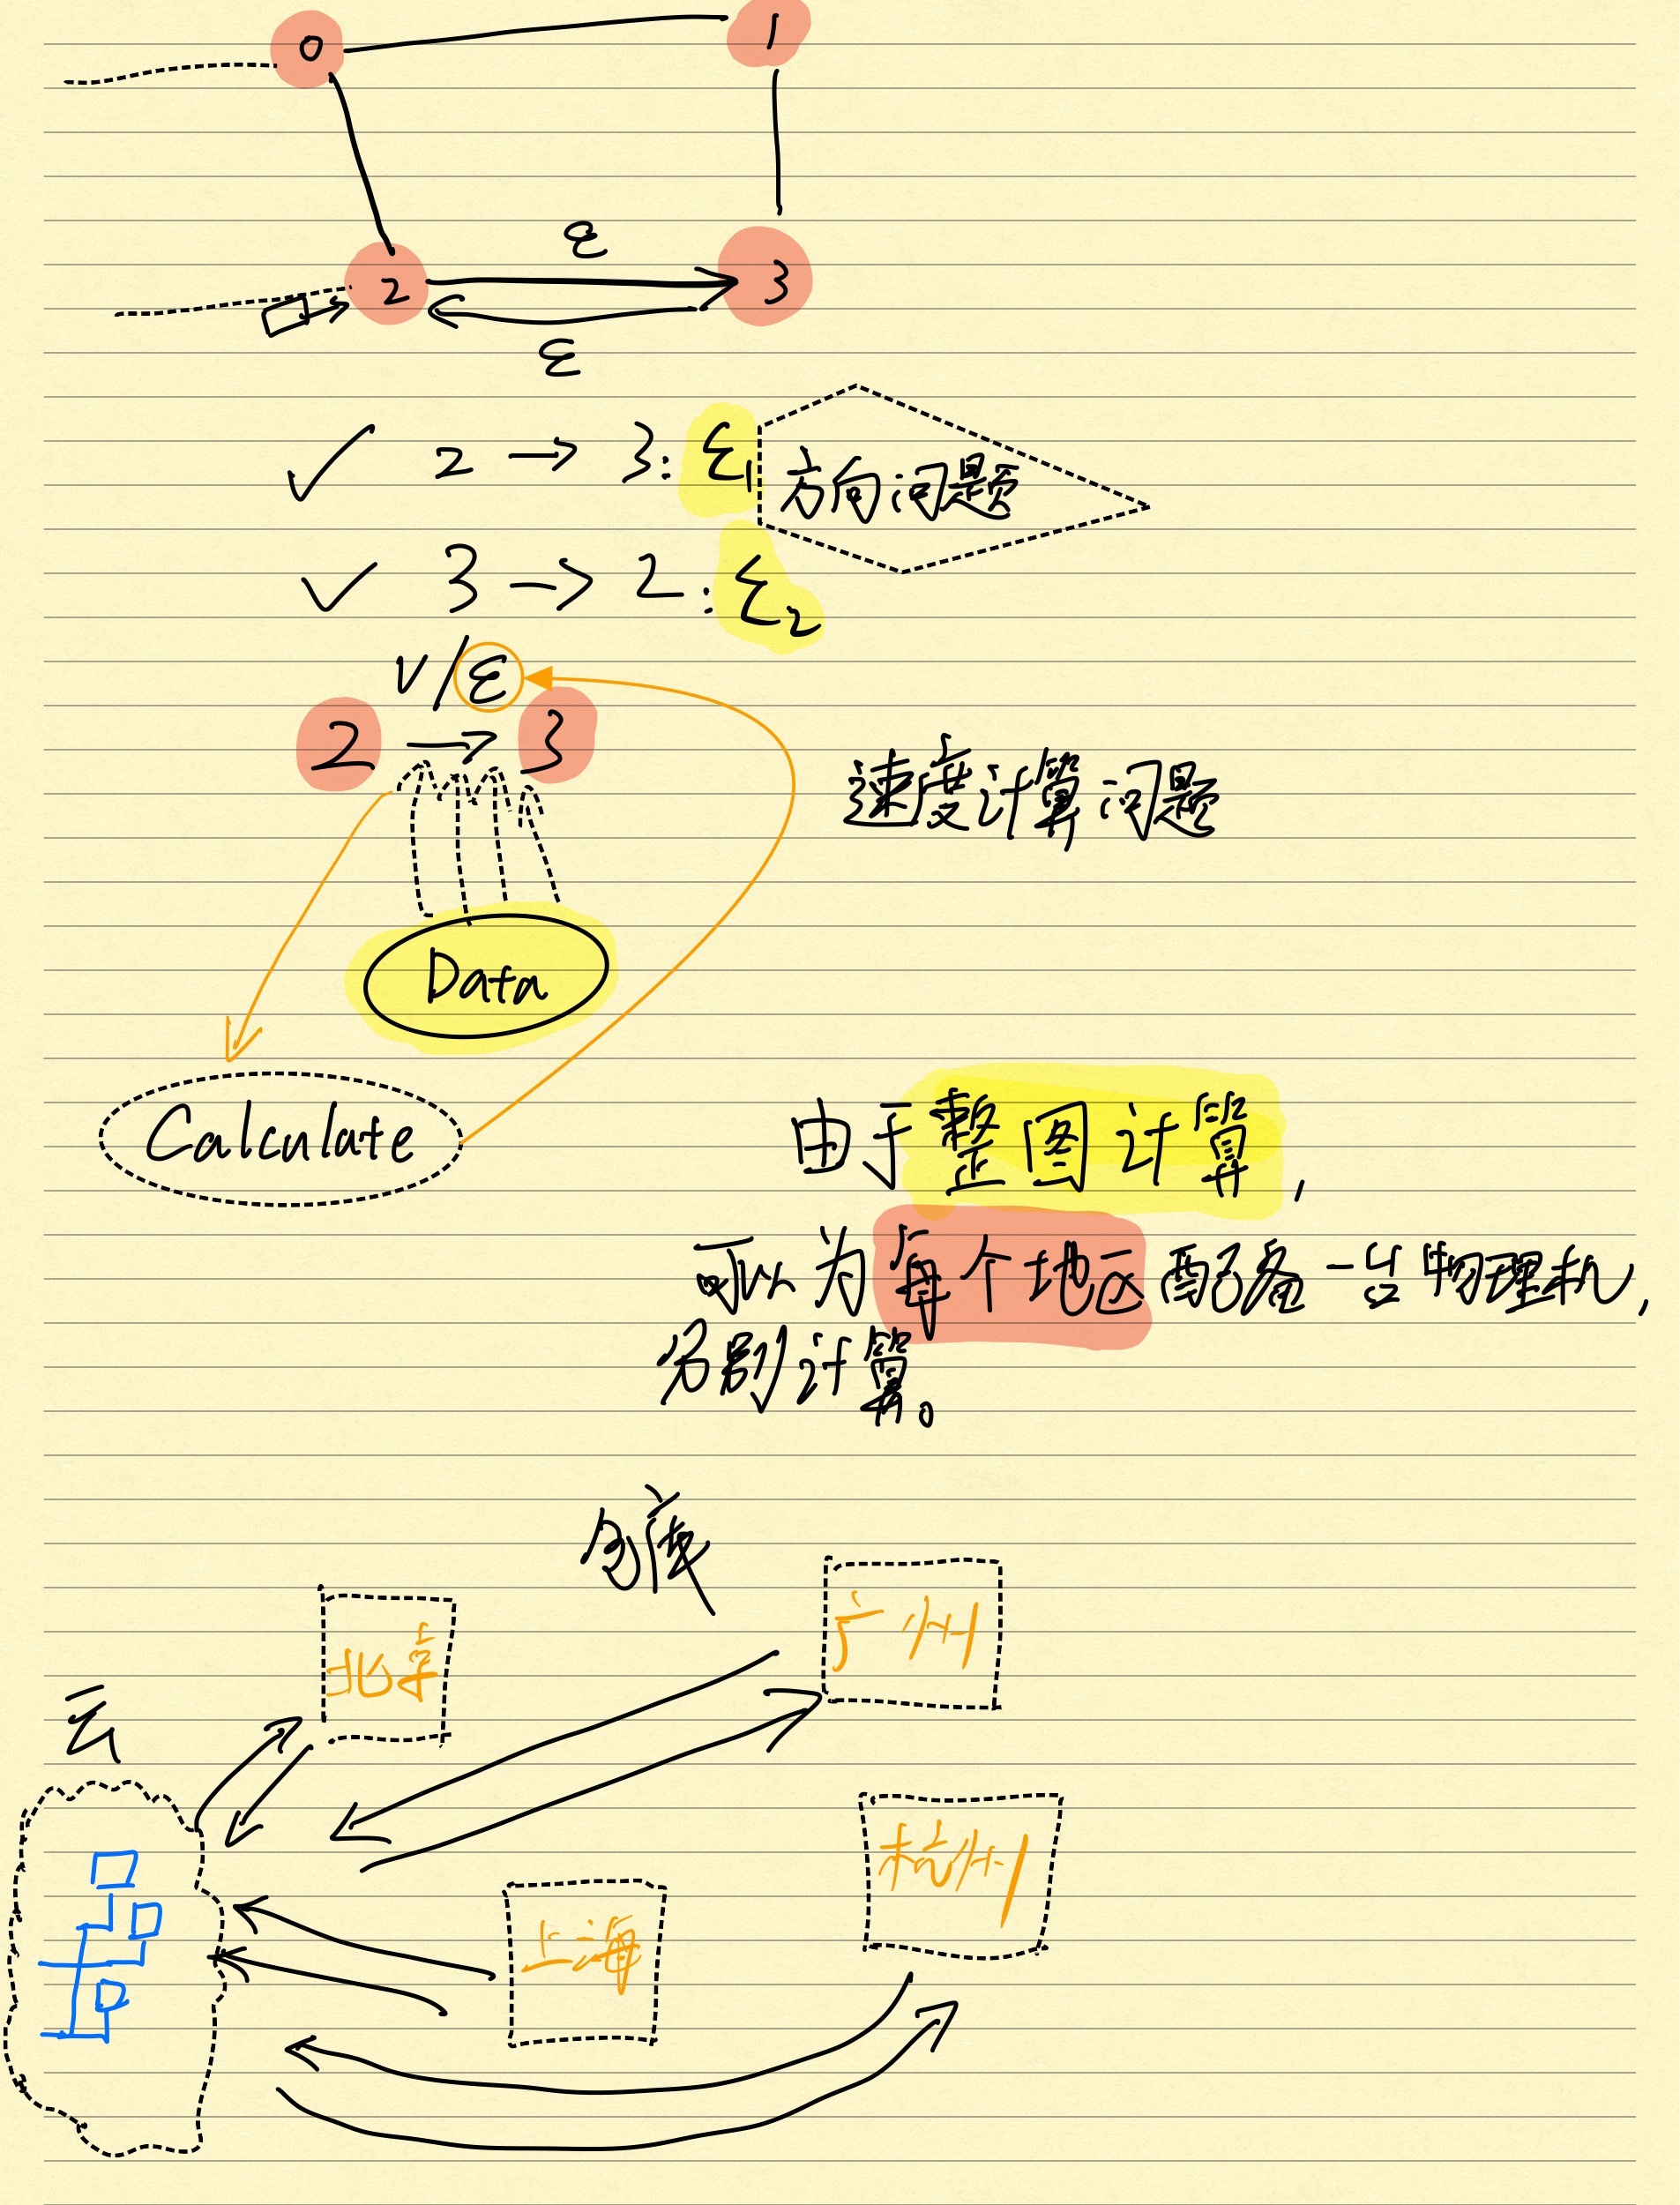 0 1
ε
2 3
ε
✓ 2 → 3: ε1 方向问题
✓ 3 → 2: ε2
v/ε
2 → 3
速度计算问题
Data
Calculate
由于整图计算,
可以为每个地区配备一台物理机,
分别计算。
仓库
广州
北京
云
杭州
上海